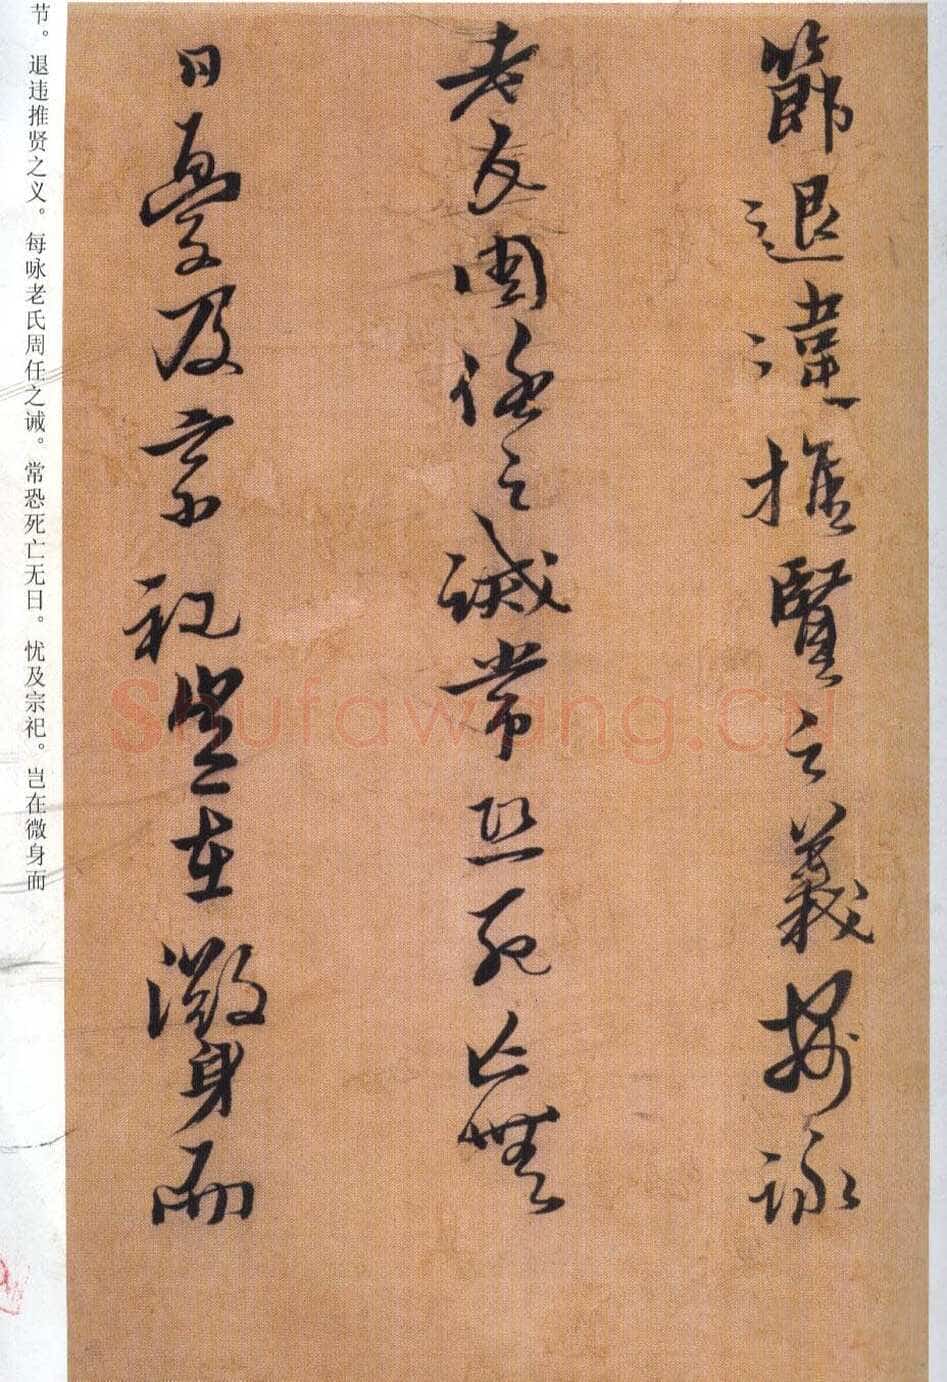 節退違推賢之義每詠
老氏周任之誡常恐死亡無
日憂及宗祀豈在微身而
节。退违推贤之义。每咏老氏周任之诫。常恐死亡无日。忧及宗祀。岂在微身而
Shufawang.cn